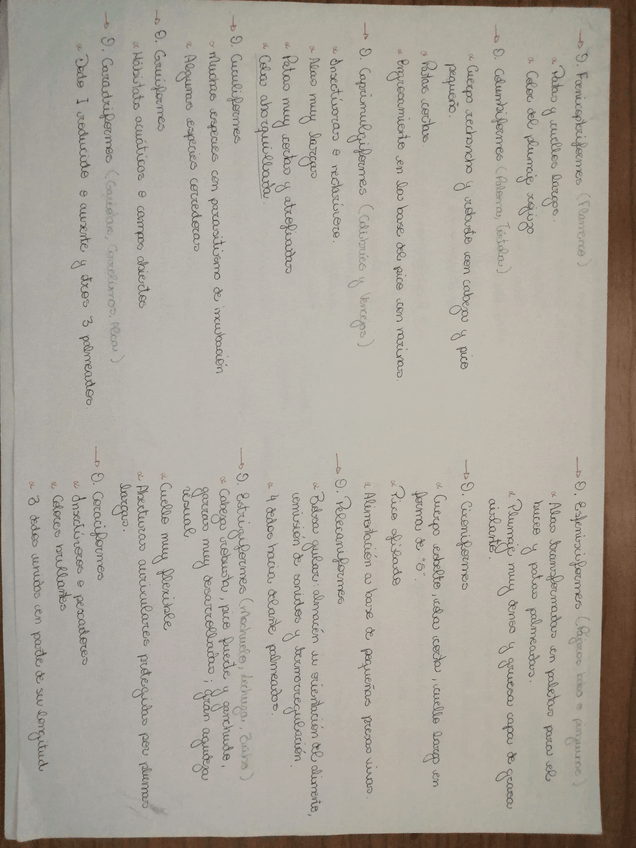 → O. Fenicopteriformes (Flamenco)
× Patas y cuellos largos.
× Color del plumaje rojizo
→ O. Columbiformes (Paloma, Tórtola)
× Cuerpo rechoncho y robusto con cabeza y pico
pequeño.
× Patas cortas
× Engrosamiento en las base del pico con narinas
→ O. Caprimulgiformes (Colibríes y Vencejos)
× Insectívoras o nectarívoro.
× Alas muy largas
× Patas muy cortas y atrofiadas
× Colas ahorquillada
→ O. Cuculiformes
× Muchas especies con parasitismo de incubación
× Algunas especies corredoras
→ O. Gruiformes
× Hábitats acuáticos o campos abiertos
→ O. Caradriformes (Gaviotas,
× Dedo I reducido o ausente y otros 3 palmeados
→ O. Esfenisciformes (Pájaros bobos o pingüinos)
× Alas transformadas en paletas para el
buceo y patas palmeadas.
× Plumaje muy denso y gruesa capa de grasa
aislante
→ O. Ciconiformes
× Cuerpo esbelto, cola corta, cuello largo en
forma de "S".
× Pico afilado
× Alimentación a base de pequeñas presas vivas
→ O. Pelecaniformes
× Bolsa gular: almacén u orientación del alimento,
emisión de sonidos y termorregulación.
× 4 dedos hacia delante palmeados.
→ O. Estrigiformes (Mochuelo, Lechuza,
× Cabeza robusta, pico fuerte y ganchudo,
garras muy desarrolladas; gran agudeza
visual
× Cuello muy flexible
× Aberturas auriculares protegidas por plumas
largas.
→ O. Coraciformes
× Insectívoros o pescadores
× Colores brillantes
× 3 dedos unidos en parte de su longitud